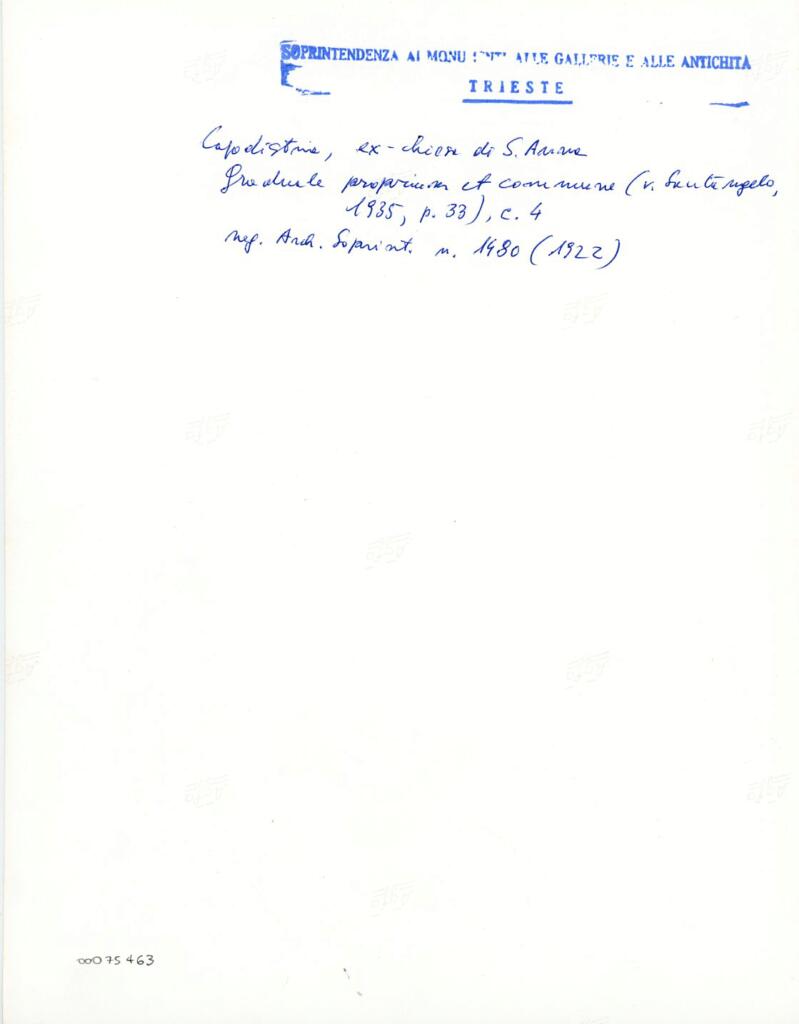 SOPRINTENDENZA AI MONUMENTI ALLE GALLERIE E ALLE ANTICHITA
TRIESTE
Capodistria, ex-chiesa di S. Anna
Graduale proprium et commune (v. Santangelo,
1935, p. 33), c. 4
neg. Arch. Soprint. n. 1480 (1922)
00075463